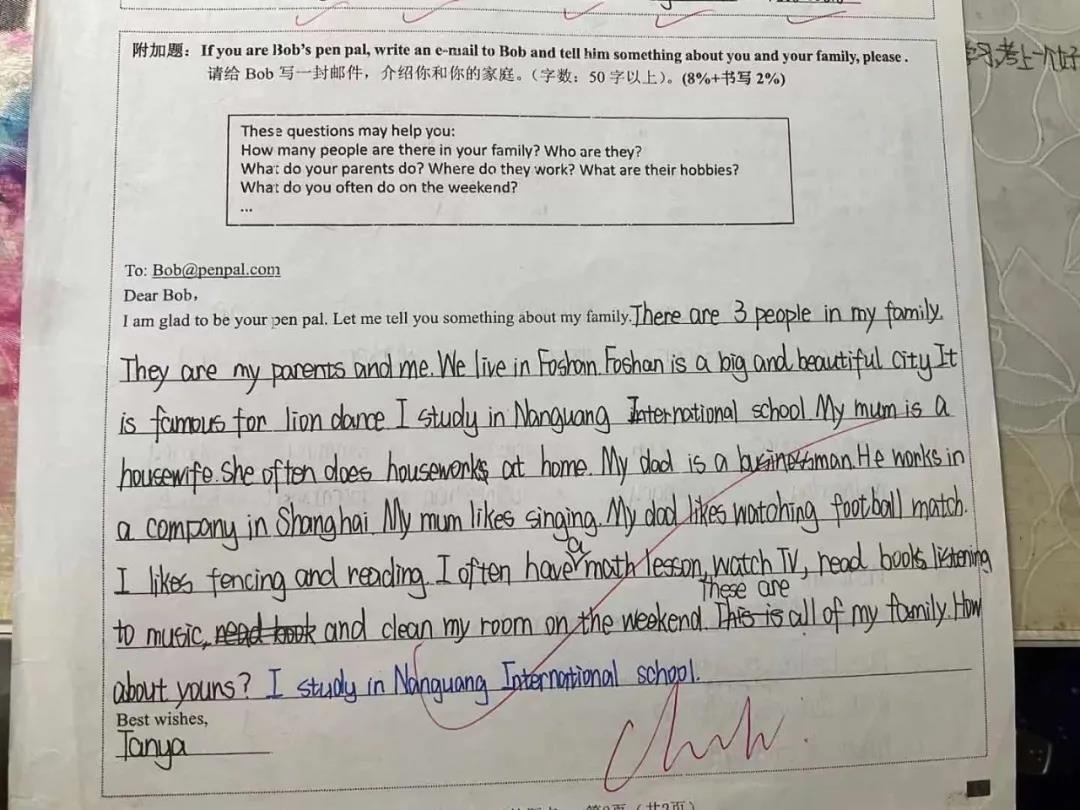 学习,考上一个好
附加题：If you are Bob's pen pal, write an e-mail to Bob and tell him something about you and your family, please.
请给 Bob 写一封邮件，介绍你和你的家庭。（字数：50 字以上）。(8%+书写 2%)
These questions may help you:
How many people are there in your family? Who are they?
What do your parents do? Where do they work? What are their hobbies?
What do you often do on the weekend?
...
To: Bob@penpal.com
Dear Bob,
I am glad to be your pen pal. Let me tell you something about my family. There are 3 people in my family.
They are my parents and me. We live in Foshan. Foshan is a big and beautiful city. It
is famous for lion dance. I study in Nanguang International school. My mum is a
housewife. She often does houseworks at home. My dad is a businessman. He works in
a company in Shanghai. My mum likes singing. My dad likes watching football match.
I likes fencing and reading. I often have a math lesson, watch TV, read books, listening
to music, read book and clean my room on the weekend. This is these are all of my family. How
about yours? I study in Nanguang International school.
Best wishes,
Tanya